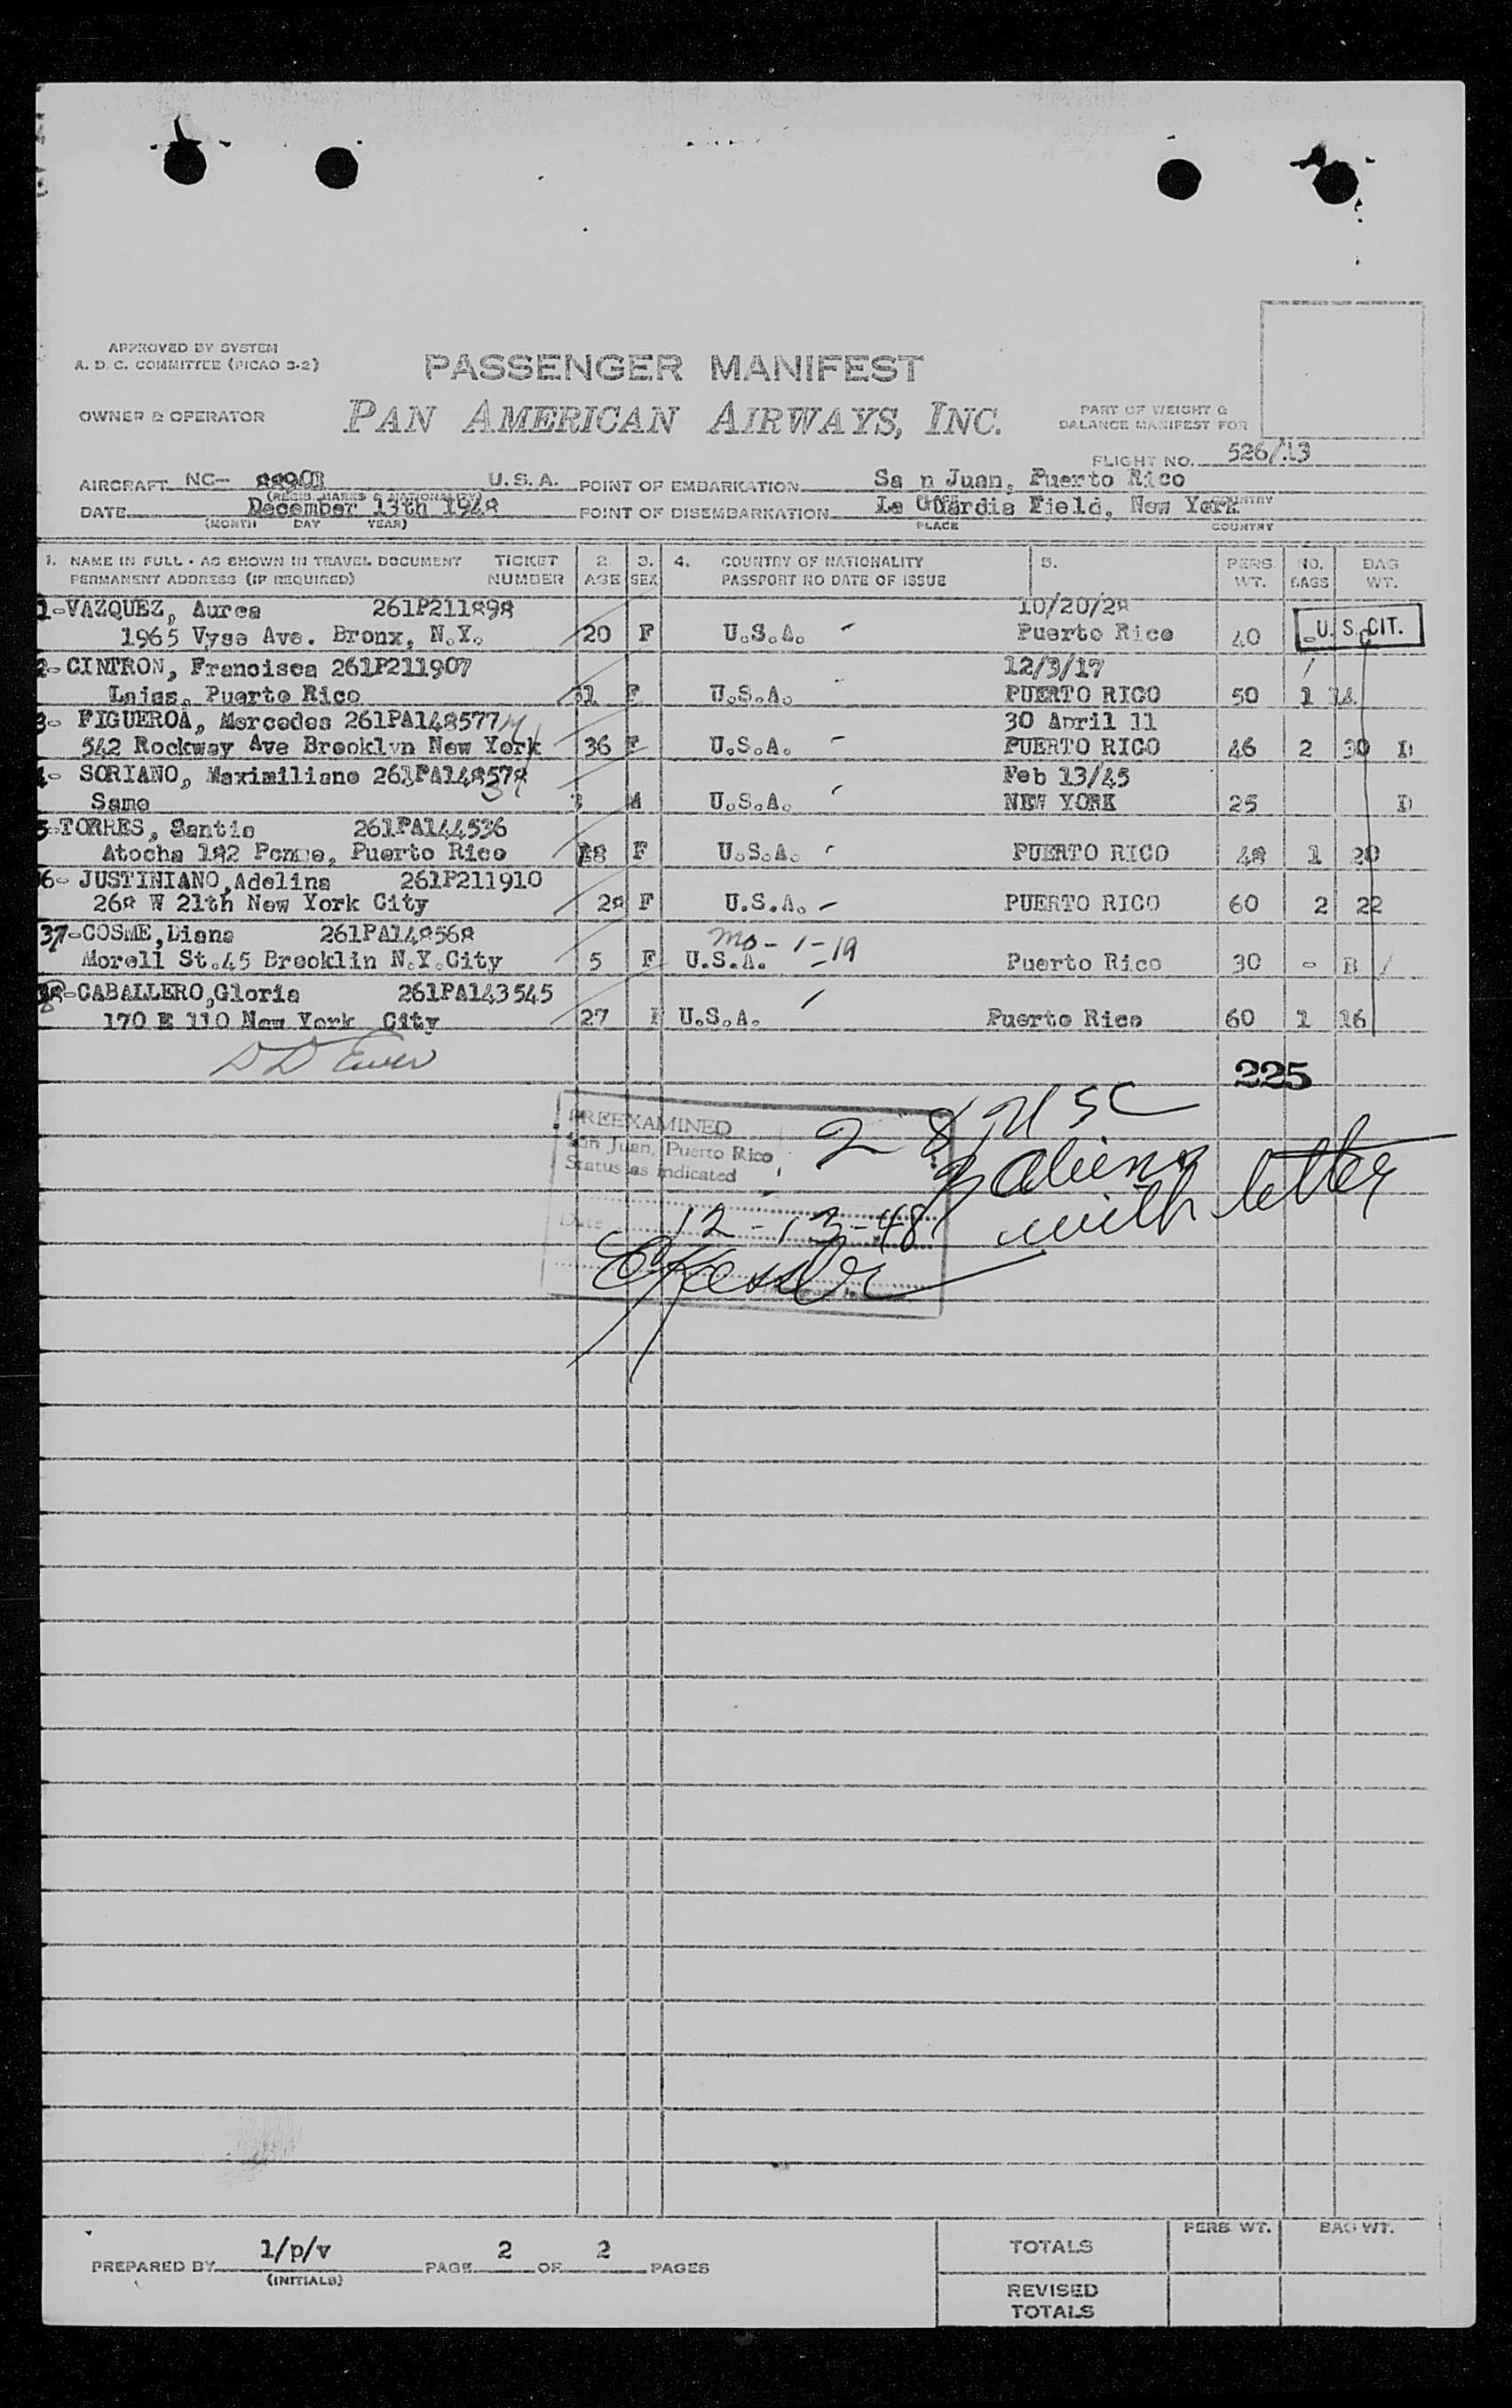 APPROVED BY SYSTEM
A. D. C. COMMITTEE (PICAO S-2)
PASSENGER MANIFEST
OWNER & OPERATOR
PAN AMERICAN AIRWAYS, INC.
PART OF WEIGHT &
BALANCE MANIFEST FOR
FLIGHT NO. 526/13
AIRCRAFT NC- U. S. A. POINT OF EMBARKATION Sa n Juan, Puerto Rico
(REGIS. MARKS & NATIONALITY)
DATE December 13th 1948 POINT OF DISEMBARKATION La Guardia Field, New York
(MONTH DAY YEAR) PLACE COUNTRY
1. NAME IN FULL - AS SHOWN IN TRAVEL DOCUMENT TICKET 2. 3. 4. COUNTRY OF NATIONALITY 5. PERS. NO. BAG
PERMANENT ADDRESS (IF REQUIRED) NUMBER AGE SEX PASSPORT NO DATE OF ISSUE WT. BAGS WT.
1-VAZQUEZ, Aurea 261P211898 10/20/28
1965 Vyse Ave. Bronx, N.Y. 20 F U.S.A. - Puerto Rico 40 - U. S. CIT.
2-CINTRON, Francisca 261P211907 12/3/17
Puerto Rico 31 F U.S.A. - PUERTO RICO 50 1 14
3- FIGUEROA, Mercedes 261PA148577 30 April 11
542 Rockway Ave Brooklyn New York 36 F U.S.A. - PUERTO RICO 46 2 30 D
4- SORIANO, Maximiliano 261PA148578 Feb 13/45
Same 3 M U.S.A. NEW YORK 25 D
5-TORRES, Santia 261PA144536
Atocha 182 Ponce, Puerto Rico 18 F U.S.A. PUERTO RICO 48 1 20
6- JUSTINIANO,Adelina 261P211910
268 W 21th New York City 28 F U.S.A. - PUERTO RICO 60 2 22
37-COSME,Diana 261PA148568 mo-1-19
Morell St.45 Brooklin N.Y.City 5 F U.S.A. Puerto Rico 30 - B
38-CABALLERO,Gloria 261PA143545
170 E 110 New York City 27 F U.S.A. Puerto Rico 60 1 16
225
PREEXAMINED
San Juan, Puerto Rico
Status as indicated
USC
2 aliens
with letter
Date 12-13-48
PREPARED BY 1/p/v PAGE 2 OF 2 PAGES
(INITIALS)
PERS. WT. BAG WT.
TOTALS
REVISED
TOTALS